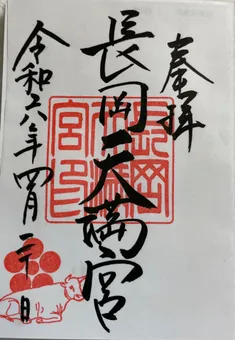 奉拝
長岡天満宮
令和六年四月二十日
長岡天満宮印